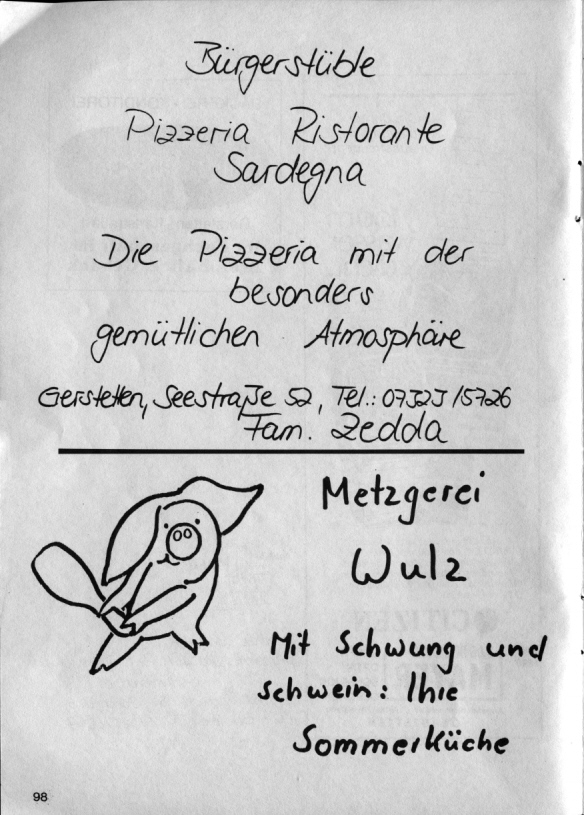 Bürgerstüble
Pizzeria Ristorante
Sardegna
Die Pizzeria mit der
besonders
gemütlichen Atmosphäre
Gerstetten, Seestraße 52, Tel.: 07323/5726
Fam. Zedda
Metzgerei
Wulz
Mit Schwung und
Schwein: Ihre
Sommerküche
98